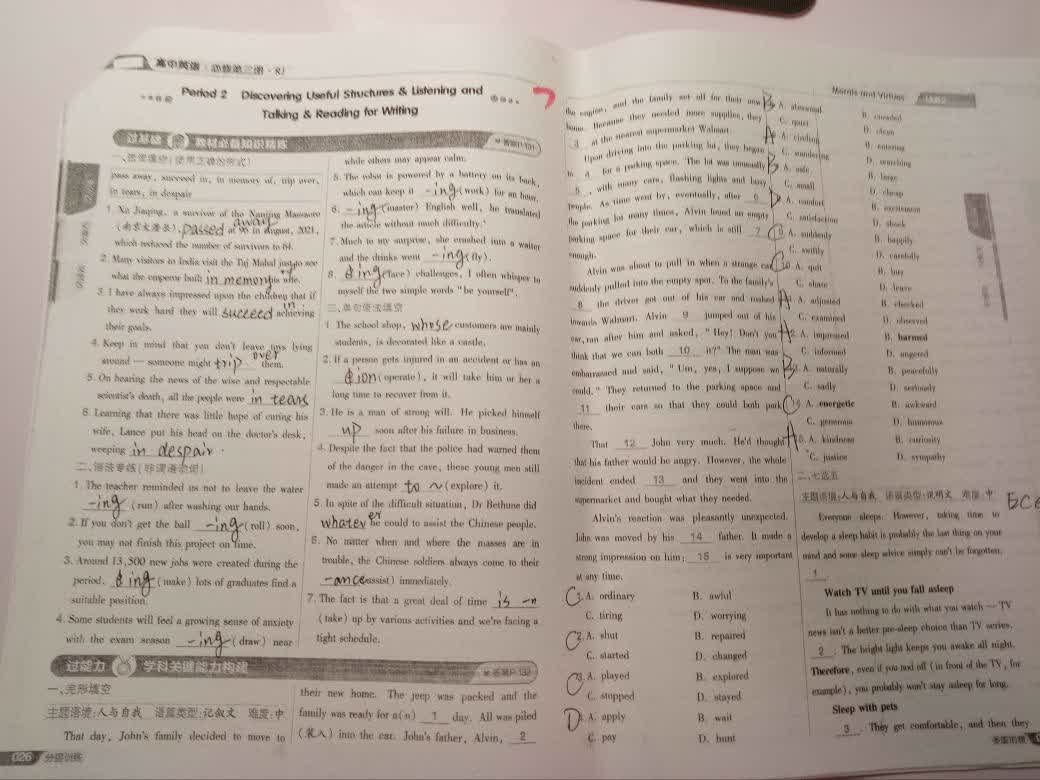 高中英语(必修第三册·RJ)
Period 2 Discovering Useful Structures & Listening and
Talking & Reading for Writing
过基础 教材必备知识精练
一、选词填空(使用正确的形式)
pass away, succeed in, in memory of, trip over,
in tears, in despair
1. Xu Jiaqing, a survivor of the Nanjing Massacre
(南京大屠杀), passed away at 96 in August, 2021,
which reduced the number of survivors to 64.
2. Many visitors to India visit the Taj Mahal just to see
what the emperor built in memory of his wife.
3. I have always impressed upon the children that if
they work hard they will succeed in achieving
their goals.
4. Keep in mind that you don't leave toys lying
around — someone might trip over them.
5. On hearing the news of the wise and respectable
scientist's death, all the people were in tears
6. Learning that there was little hope of curing his
wife, Lance put his head on the doctor's desk,
weeping in despair.
二、语法专练(非谓语动词)
1. The teacher reminded us not to leave the water
-ing (run) after washing our hands.
2. If you don't get the ball -ing (roll) soon,
you may not finish this project on time.
3. Around 13,500 new jobs were created during the
period, ing (make) lots of graduates find a
suitable position.
4. Some students will feel a growing sense of anxiety
with the exam season -ing (draw) near
while others may appear calm.
5. The robot is powered by a battery on its back,
which can keep it -ing (work) for an hour.
6. -ing (master) English well, he translated
the article without much difficulty.
7. Much to my surprise, she crashed into a waiter
and the drinks went -ing (fly).
8. ing (face) challenges, I often whisper to
myself the two simple words "be yourself".
三、单句语法填空
1. The school shop, whose customers are mainly
students, is decorated like a castle.
2. If a person gets injured in an accident or has an
ion (operate), it will take him or her a
long time to recover from it.
3. He is a man of strong will. He picked himself
up soon after his failure in business.
4. Despite the fact that the police had warned them
of the danger in the cave, these young men still
made an attempt to ~ (explore) it.
5. In spite of the difficult situation, Dr Bethune did
whatever he could to assist the Chinese people.
6. No matter when and where the masses are in
trouble, the Chinese soldiers always come to their
-ance (assist) immediately.
7. The fact is that a great deal of time is -n
(take) up by various activities and we're facing a
tight schedule.
过能力 学科关键能力构建
一、完形填空
主题语境:人与自我 语篇类型:记叙文 难度:中
That day, John's family decided to move to
their new home. The jeep was packed and the
family was ready for a(n) 1 day. All was piled
(装入) into the car. John's father, Alvin, 2
026 分层训练
Morals and Virtues
the engine, and the family set off for their new
home. Because they needed more supplies, they
3 at the nearest supermarket Walmart.
Upon driving into the parking lot, they began
to 4 for a parking space. The lot was unusually
5, with many cars, flashing lights and busy
people. As time went by, eventually, after 6
the parking lot many times, Alvin found an empty
parking space for their car, which is still 7
enough.
Alvin was about to pull in when a strange car
suddenly pulled into the empty spot. To the family's
8 the driver got out of his car and rushed
towards Walmart. Alvin 9 jumped out of his
car, ran after him and asked, "Hey! Don't you
think that we can both 10 it?" The man was
embarrassed and said, "Um, yes, I suppose we
could." They returned to the parking space and
11 their cars so that they could both park
there.
That 12 John very much. He'd thought
that his father would be angry. However, the whole
incident ended 13 and they went into the
supermarket and bought what they needed.
Alvin's reaction was pleasantly unexpected.
John was moved by his 14 father. It made a
strong impression on him; 15 is very important
at any time.
C 1. A. ordinary B. awful
C. tiring D. worrying
C 2. A. shut B. repaired
C. started D. changed
C 3. A. played B. explored
C. stopped D. stayed
D 4. A. apply B. wait
C. pay D. hunt
B A. abnormal B. crowded
C. quiet D. clean
A A. circling B. entering
C. wandering D. searching
B A. safe B. large
C. small D. cheap
D A. comfort B. excitement
C. satisfaction D. shock
A. suddenly B. happily
C. swiftly D. carefully
C A. quit B. buy
C. share D. leave
A A. adjusted B. checked
C. examined D. observed
A 12. A. impressed B. harmed
C. informed D. angered
B A. naturally B. peacefully
C. sadly D. seriously
C A. energetic B. awkward
C. generous D. humorous
A 15. A. kindness B. curiosity
C. justice D. sympathy
二、七选五
主题语境:人与自我 语篇类型:说明文 难度:中
Everyone sleeps. However, taking time to
develop a sleep habit is probably the last thing on your
mind and some sleep advice simply can't be forgotten.
1
Watch TV until you fall asleep
It has nothing to do with what you watch — TV
news isn't a better pre-sleep choice than TV series.
2. The bright light keeps you awake all night.
Therefore, even if you nod off (in front of the TV, for
example), you probably won't stay asleep for long.
Sleep with pets
3. They get comfortable, and then they